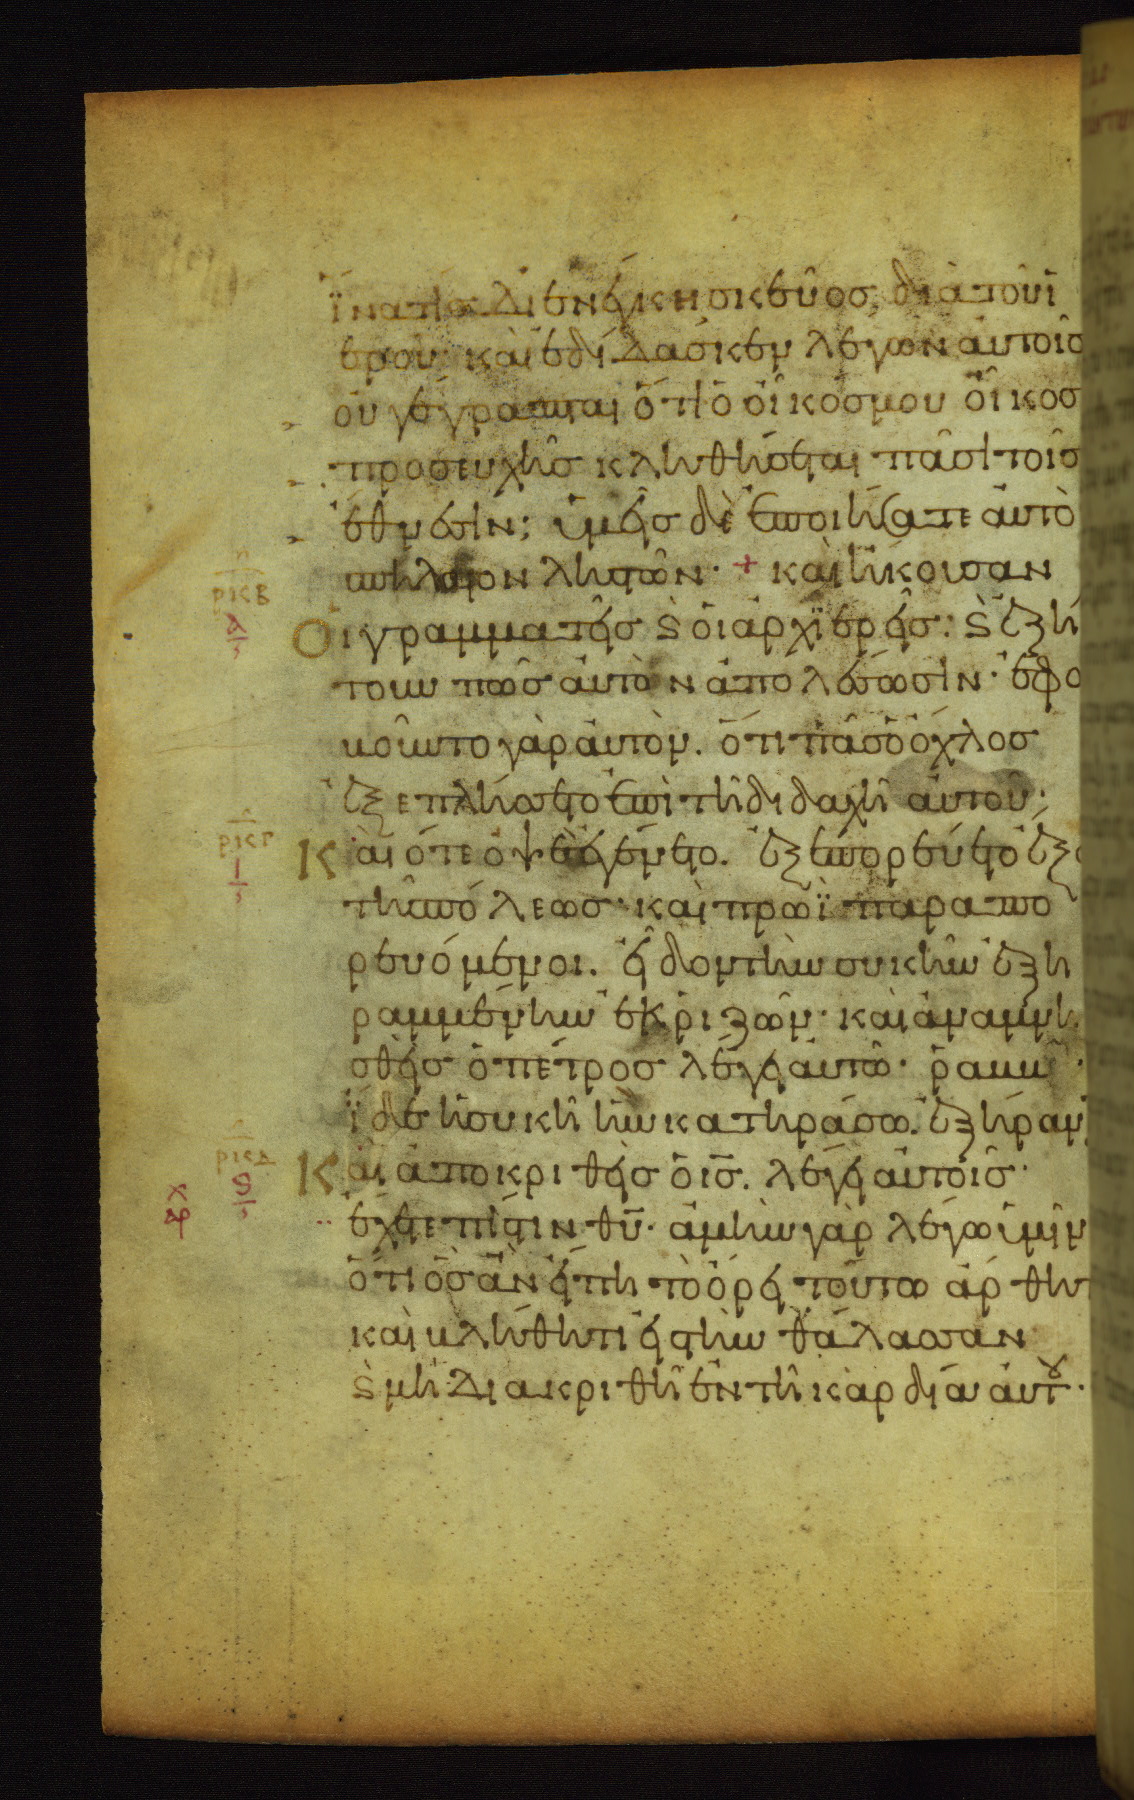 ἵνα τίσ διενέγκη σκεῦοσ, διὰ τοῦ ϊ
εροῦ· καὶ ἐδίδασκεν λέγων αὐτοῖσ
οὐ γέγραπται ὅτι ὁ οἶκόσ μου οἶκοσ
προσευχῆσ κληθήσεται πᾶσι τοῖσ
ἔθνεσιν; ὑμεῖσ δὲ ἐποιήσατε αὐτὸ
σπήλαιον ληστῶν· + καὶ ἤκουσαν
ρκβ
α
Οἱ γραμματεῖσ ϗ οἱ ἀρχϊερεῖσ: ϗ ἐζή
τουν πῶσ αὐτὸν ἀπολέσωσιν· ἐφο
βοῦντο γὰρ αὐτὸν. ὅτι πᾶσ ὁ ὄχλοσ
ἐξεπλήσσετο ἐπὶ τῆ διδαχῆ αὐτοῦ;
ρκγ
ι
Καὶ ὅτε ὀψὲ ἐγένετο. ἐξεπορεύετο ἔξω
τῆσ πόλεωσ· καὶ πρωῒ παραπο
ρευόμενοι. εἶδον τὴν συκῆν ἐξη
ραμμένην ἐκ ῥιζῶν· καὶ ἀναμνη
σθεὶσ ὁ πέτροσ λέγει αὐτῶ· ῥαββῒ·
ἴδε ἡ συκῆ ἣν κατηράσω. ἐξήραν
ρκδ
ϛ
Καὶ ἀποκριθεὶσ ὁ ισ̅. λέγει αὐτοῖσ·
χρ
ἔχετε πίστιν θυ̅· ἀμὴν γὰρ λέγω ὑμῖν
ὅτι ὃσ ἂν εἴπη τὸ ὄρει τούτω ἄρθητι
καὶ βλήθητι εἰσ τὴν θάλασσαν
ϗ μὴ διακριθῆ ἐν τῆ καρδία αὐτοῦ·